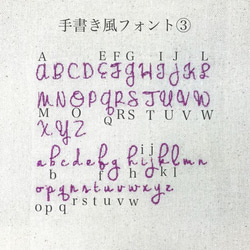 手書き風フォント③
A E F G I J L
ABCDEFGHIJKL
MNOPQRSTUVW
M O Q R S T U V W
XYZ
i j
abcdefghijklmn
b f h k l
opqrstuvwxyz
o p q r s t u v w